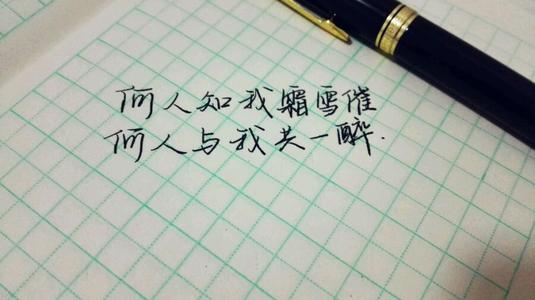 何人知我霜雪催
何人与我共一醉.